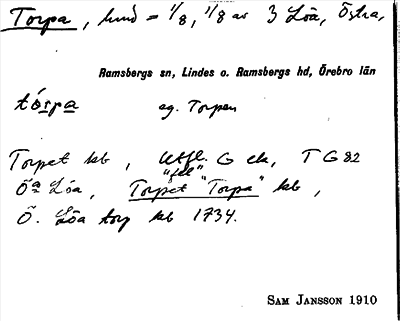 Torpa, hmd = 1/8, 1/8 av 3 Löa, Östra,
Ramsbergs sn, Lindes o. Ramsbergs hd, Örebro län
tórpa ag. Torpen
Torpet kb, Utfl. G ek, T G 82
"fel"
Öa Löa, Torpet "Torpa" kb,
Ö. Löa torp kb 1734.
SAM JANSSON 1910